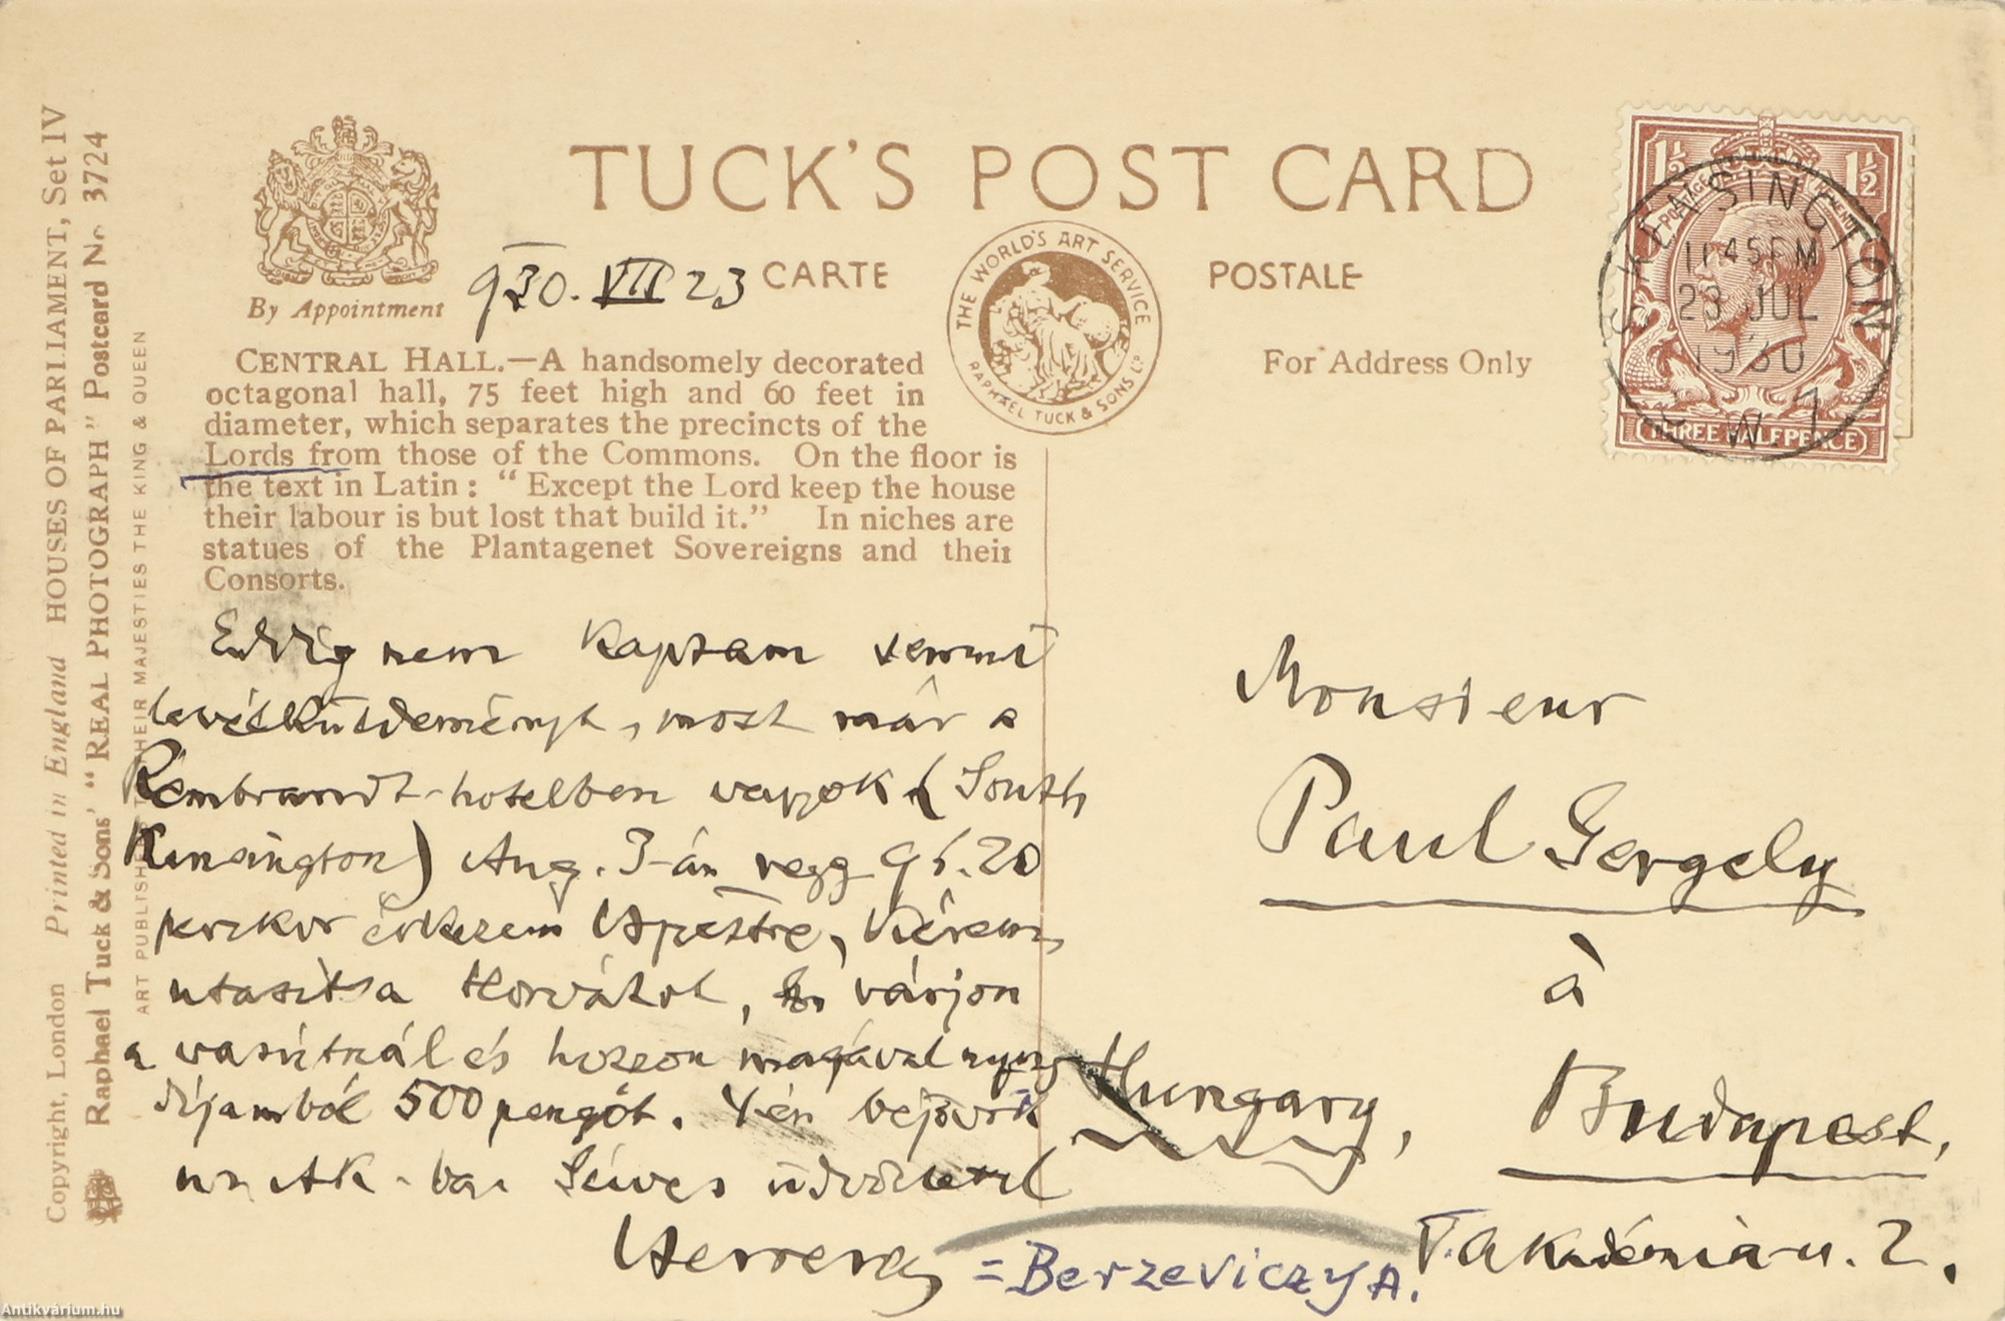 TUCK'S POST CARD
By Appointment
930. VII 23
CARTE
POSTALE
THE WORLD'S ART SERVICE
RAPHAEL TUCK & SONS LTD
For Address Only
1½ 1½
THREE HALFPENCE
S. KENSINGTON
11 45 PM
23 JUL
1930
W. 7
CENTRAL HALL.—A handsomely decorated
octagonal hall, 75 feet high and 60 feet in
diameter, which separates the precincts of the
Lords from those of the Commons. On the floor is
the text in Latin: "Except the Lord keep the house
their labour is but lost that build it." In niches are
statues of the Plantagenet Sovereigns and their
Consorts.
Eddig nem kaptam semmi
levélküldeményt, most már a
Rembrandt-hotelben vagyok (South
Kensington) Aug. 3-án regg 9 ó. 20
perckor érkezem Bpestre, kérem,
utasítsa Horvátot, hogy várjon
a vasútnál és hozzon magával nyug
díjamból 500 pengőt. 4-én bejövök
az Ak-ba. Szíves üdvözlettel
= Berzeviczy A.
Monsieur
Paul Gergely
à
Budapest,
Hungary,
V. Akadémia-u. 2.
Copyright, London Printed in England HOUSES OF PARLIAMENT, Set IV
Raphael Tuck & Sons' "REAL PHOTOGRAPH" Postcard No. 3724
ART PUBLISHERS TO THEIR MAJESTIES THE KING & QUEEN
Antikvárium.hu